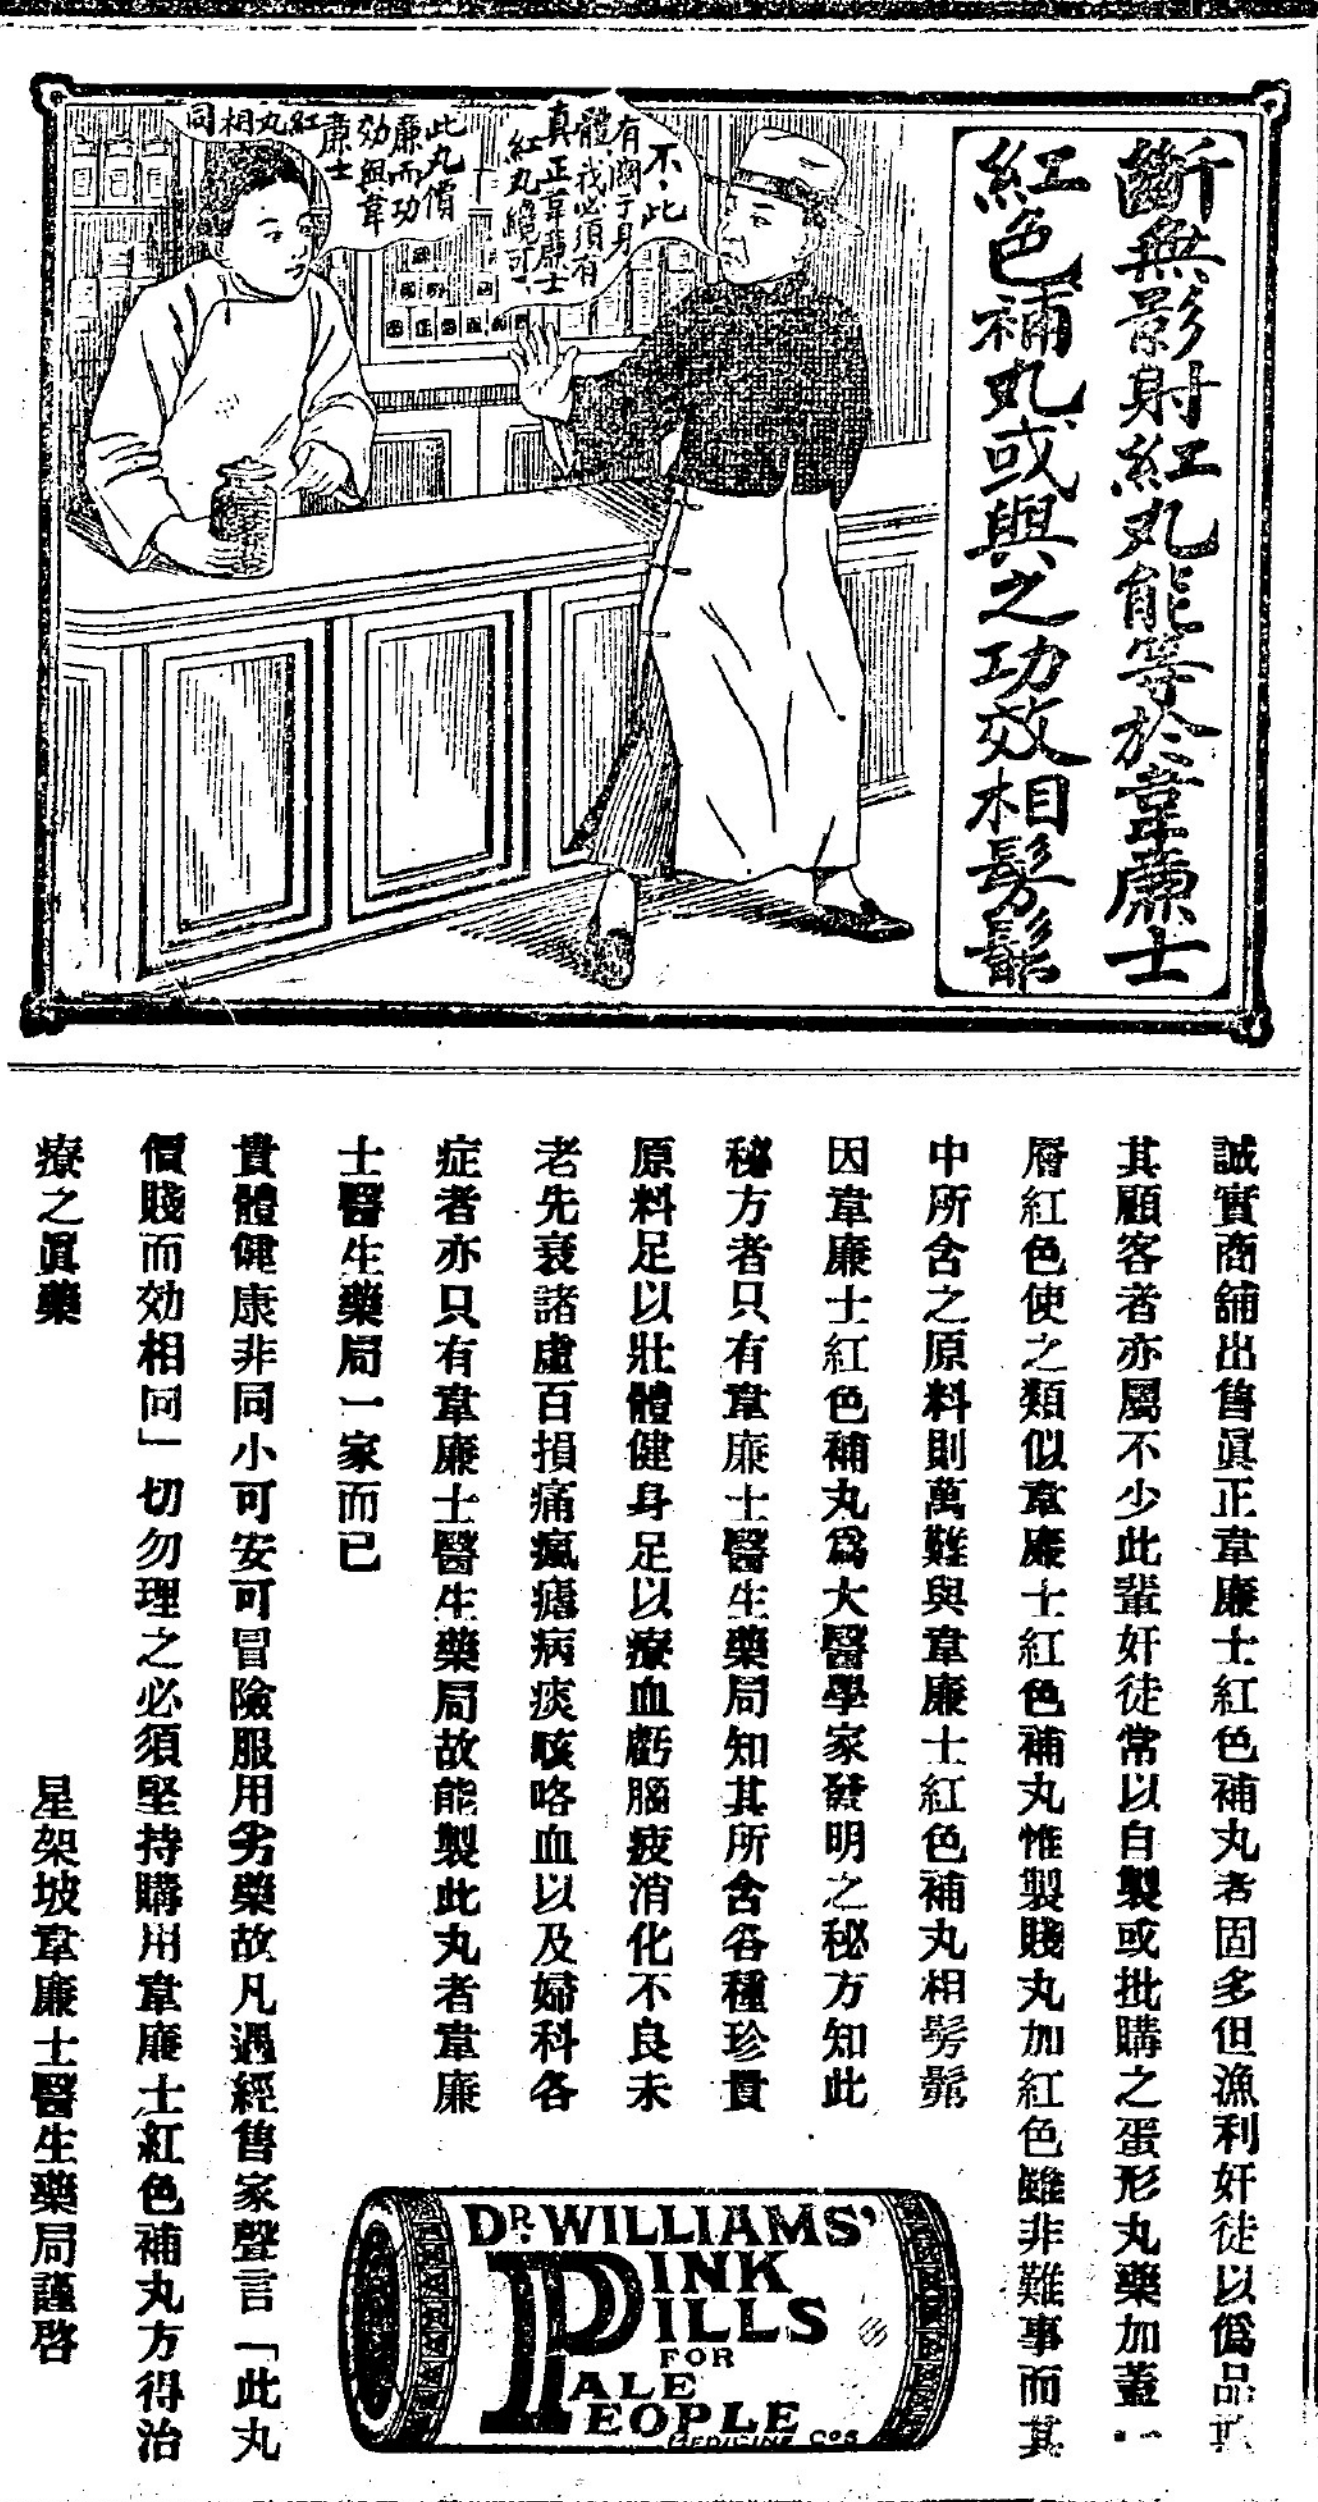 斷無影射紅丸能等於韋廉士
紅色補丸或與之功效相髣髴
不、此
有關于身
體、我必須有
真正韋廉士
紅丸纔可、
此丸價
廉而功
効與韋
廉士
紅丸相同
誠實商舖出售眞正韋廉士紅色補丸者固多但漁利奸徒以僞品欺
其顧客者亦屬不少此輩奸徒常以自製或批購之蛋形丸藥加蓋一
層紅色使之類似韋廉士紅色補丸惟製賤丸加紅色雖非難事而其
中所含之原料則萬難與韋廉士紅色補丸相髣髴
因韋廉士紅色補丸爲大醫學家發明之秘方知此
秘方者只有韋廉士醫生藥局知其所含各種珍貴
原料足以壯體健身足以療血虧腦疲消化不良未
老先衰諸虛百損痛瘋瘧病痰咳咯血以及婦科各
症者亦只有韋廉士醫生藥局故能製此丸者韋廉
士醫生藥局一家而已
貴體健康非同小可安可冒險服用劣藥故凡遇經售家聲言「此丸
價賤而効相同」切勿理之必須堅持購用韋廉士紅色補丸方得治
療之眞藥
星架坡韋廉士醫生藥局謹啓
DR. WILLIAMS'
PINK
PILLS
FOR
PALE
PEOPLE
MEDICINE Co's